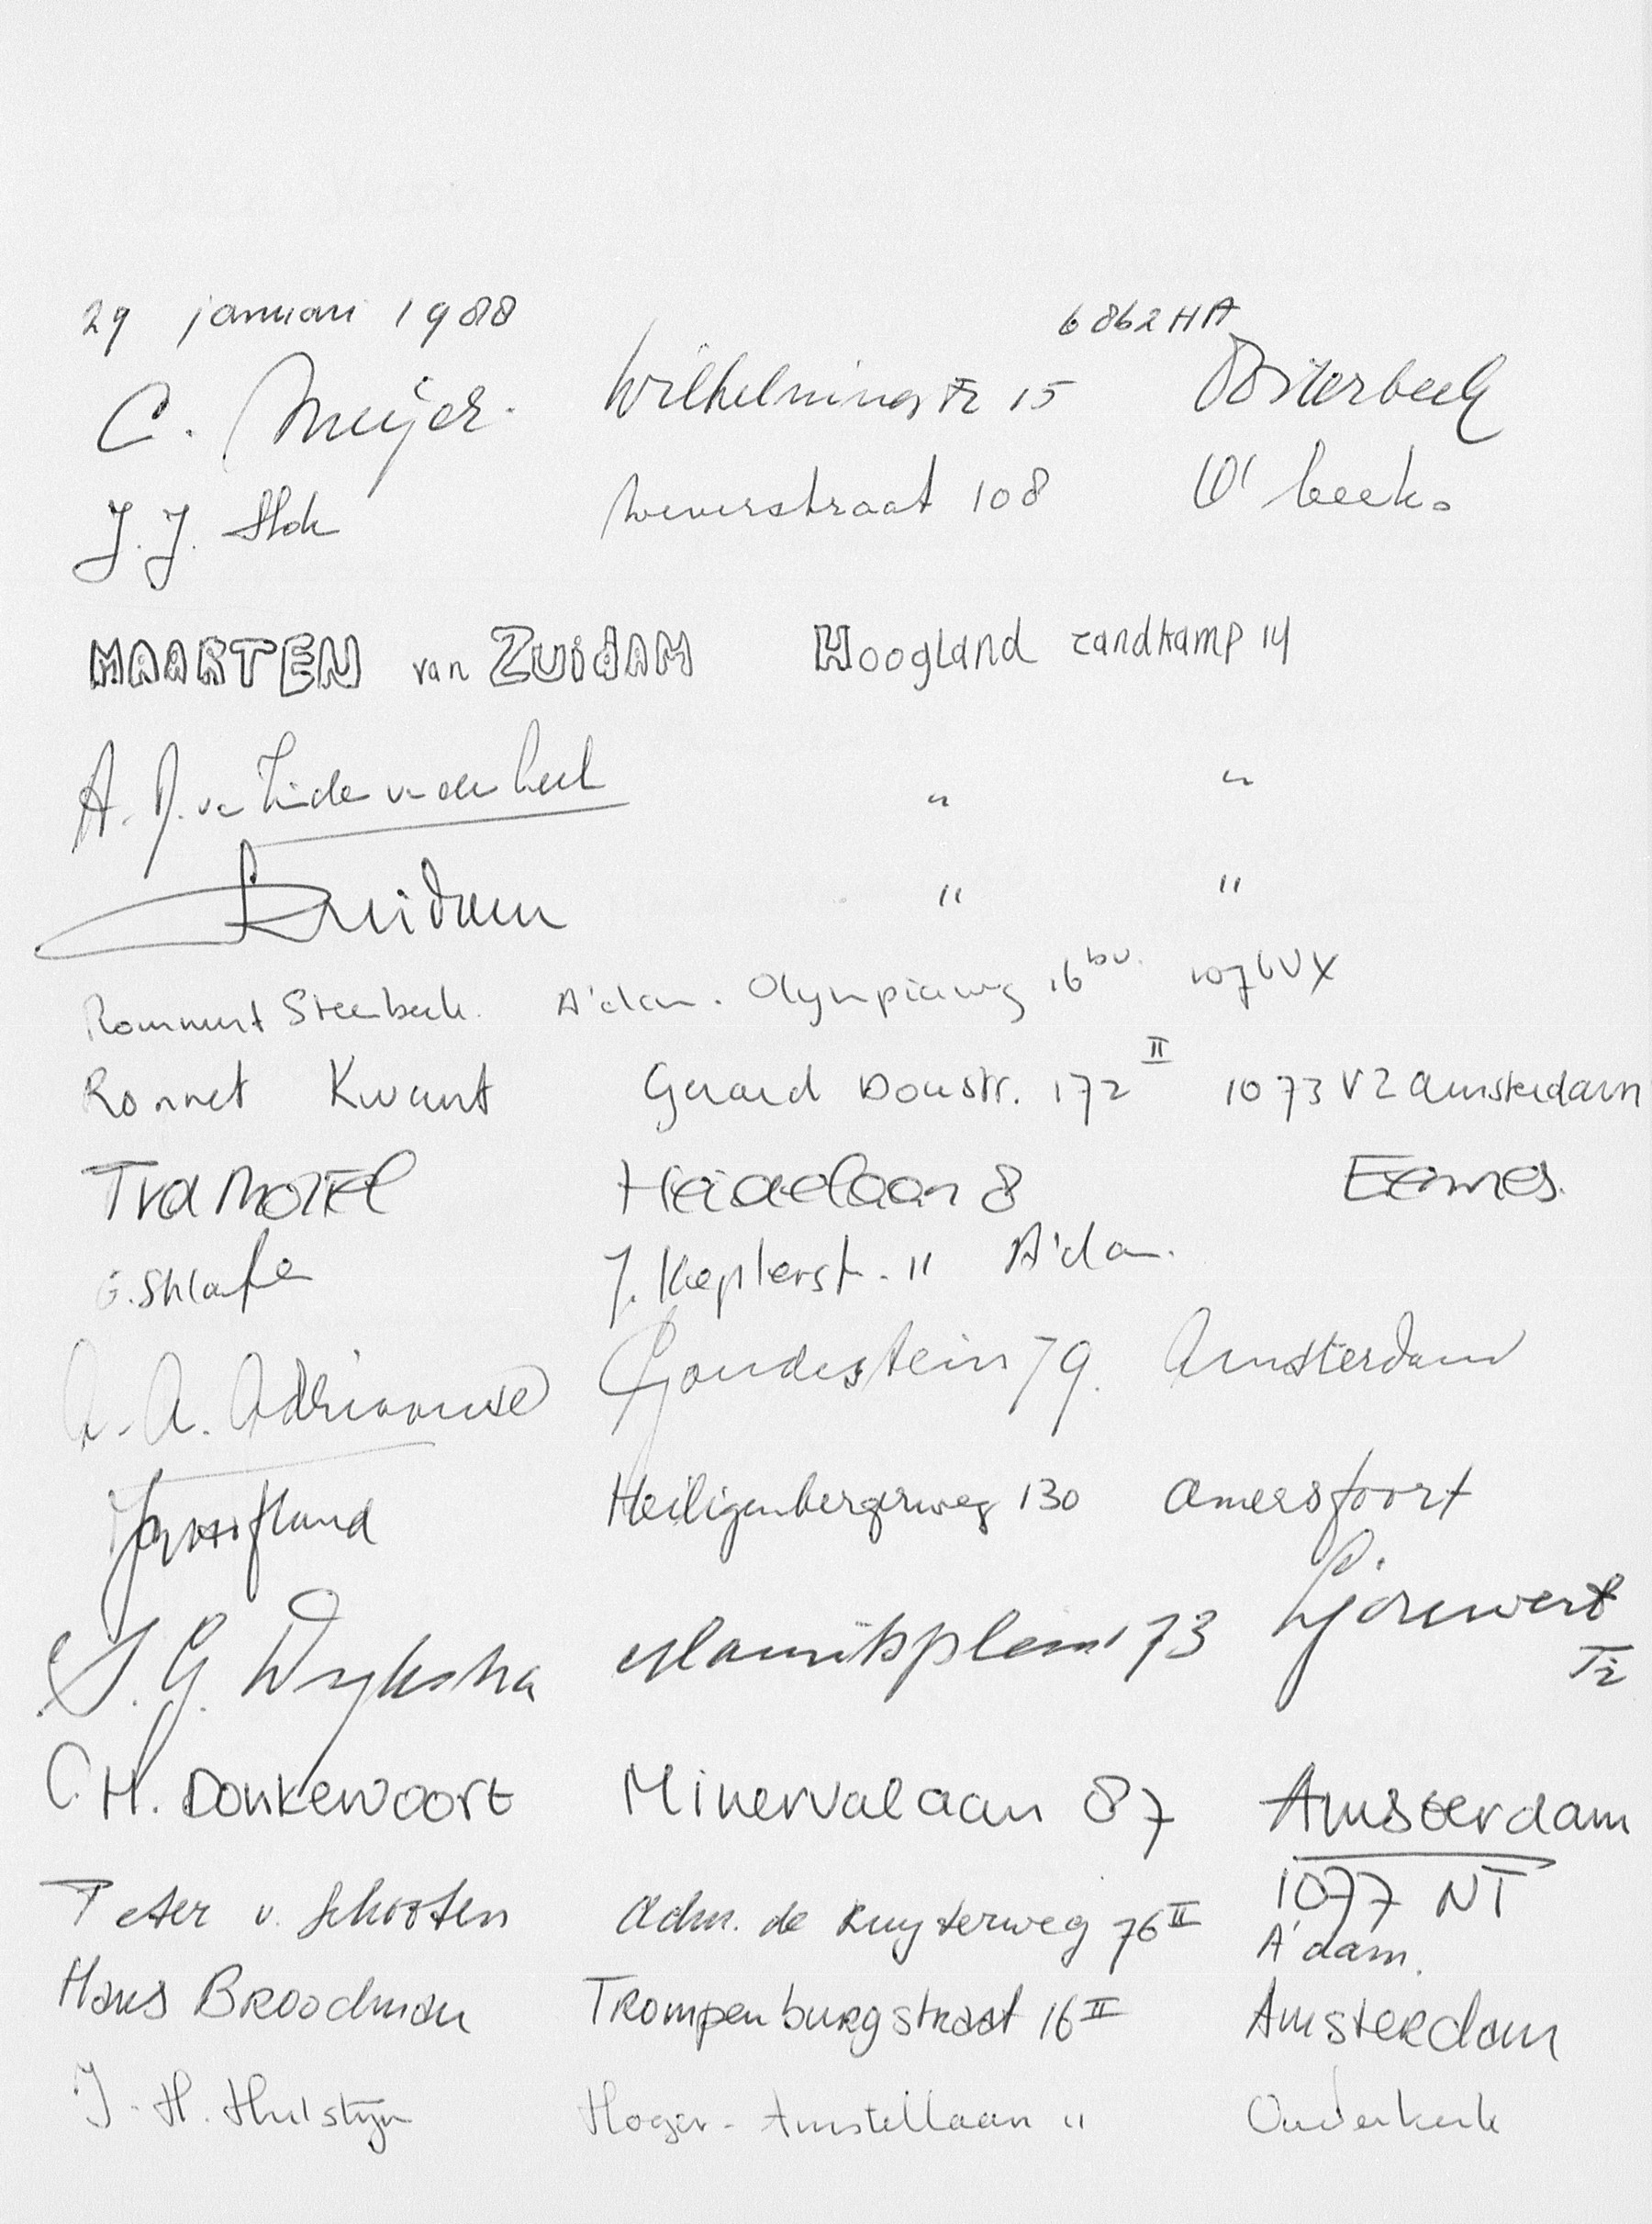 29 januari 1988
6862 HA
C. Meijer. Wilhelminastr 15 Oosterbeek
J. J. Slok Weverstraat 108 O'beek.
MAARTEN van ZUidAM HoogLANd zandkamp 14
A. v d " "
Zuidam " "
Rommert Steenbeek. A'dam. Olympiaweg 16 bv. 1076VX
Ronnet Kwant Gerard Doustr. 172 II 1073 VZ Amsterdam
Heidelaan 8 Eemnes.
J. Keplerst. 11 A'dam.
A. A. Adriaanse Goudestein 79. Amsterdam
Heiligenbergerweg 130 Amersfoort
S. G. Dijkstra Mauritsplein 73
C. H. Donkervoort Minervalaan 87 Amsterdam
1077 NT
Peter v. Schooten Adm. de Ruyterweg 76 II A'dam.
Hans Broodman Trompenburgstraat 16 II Amsterdam
J. H. Hulstijn Hoger-Amstellaan 11 Ouderkerk